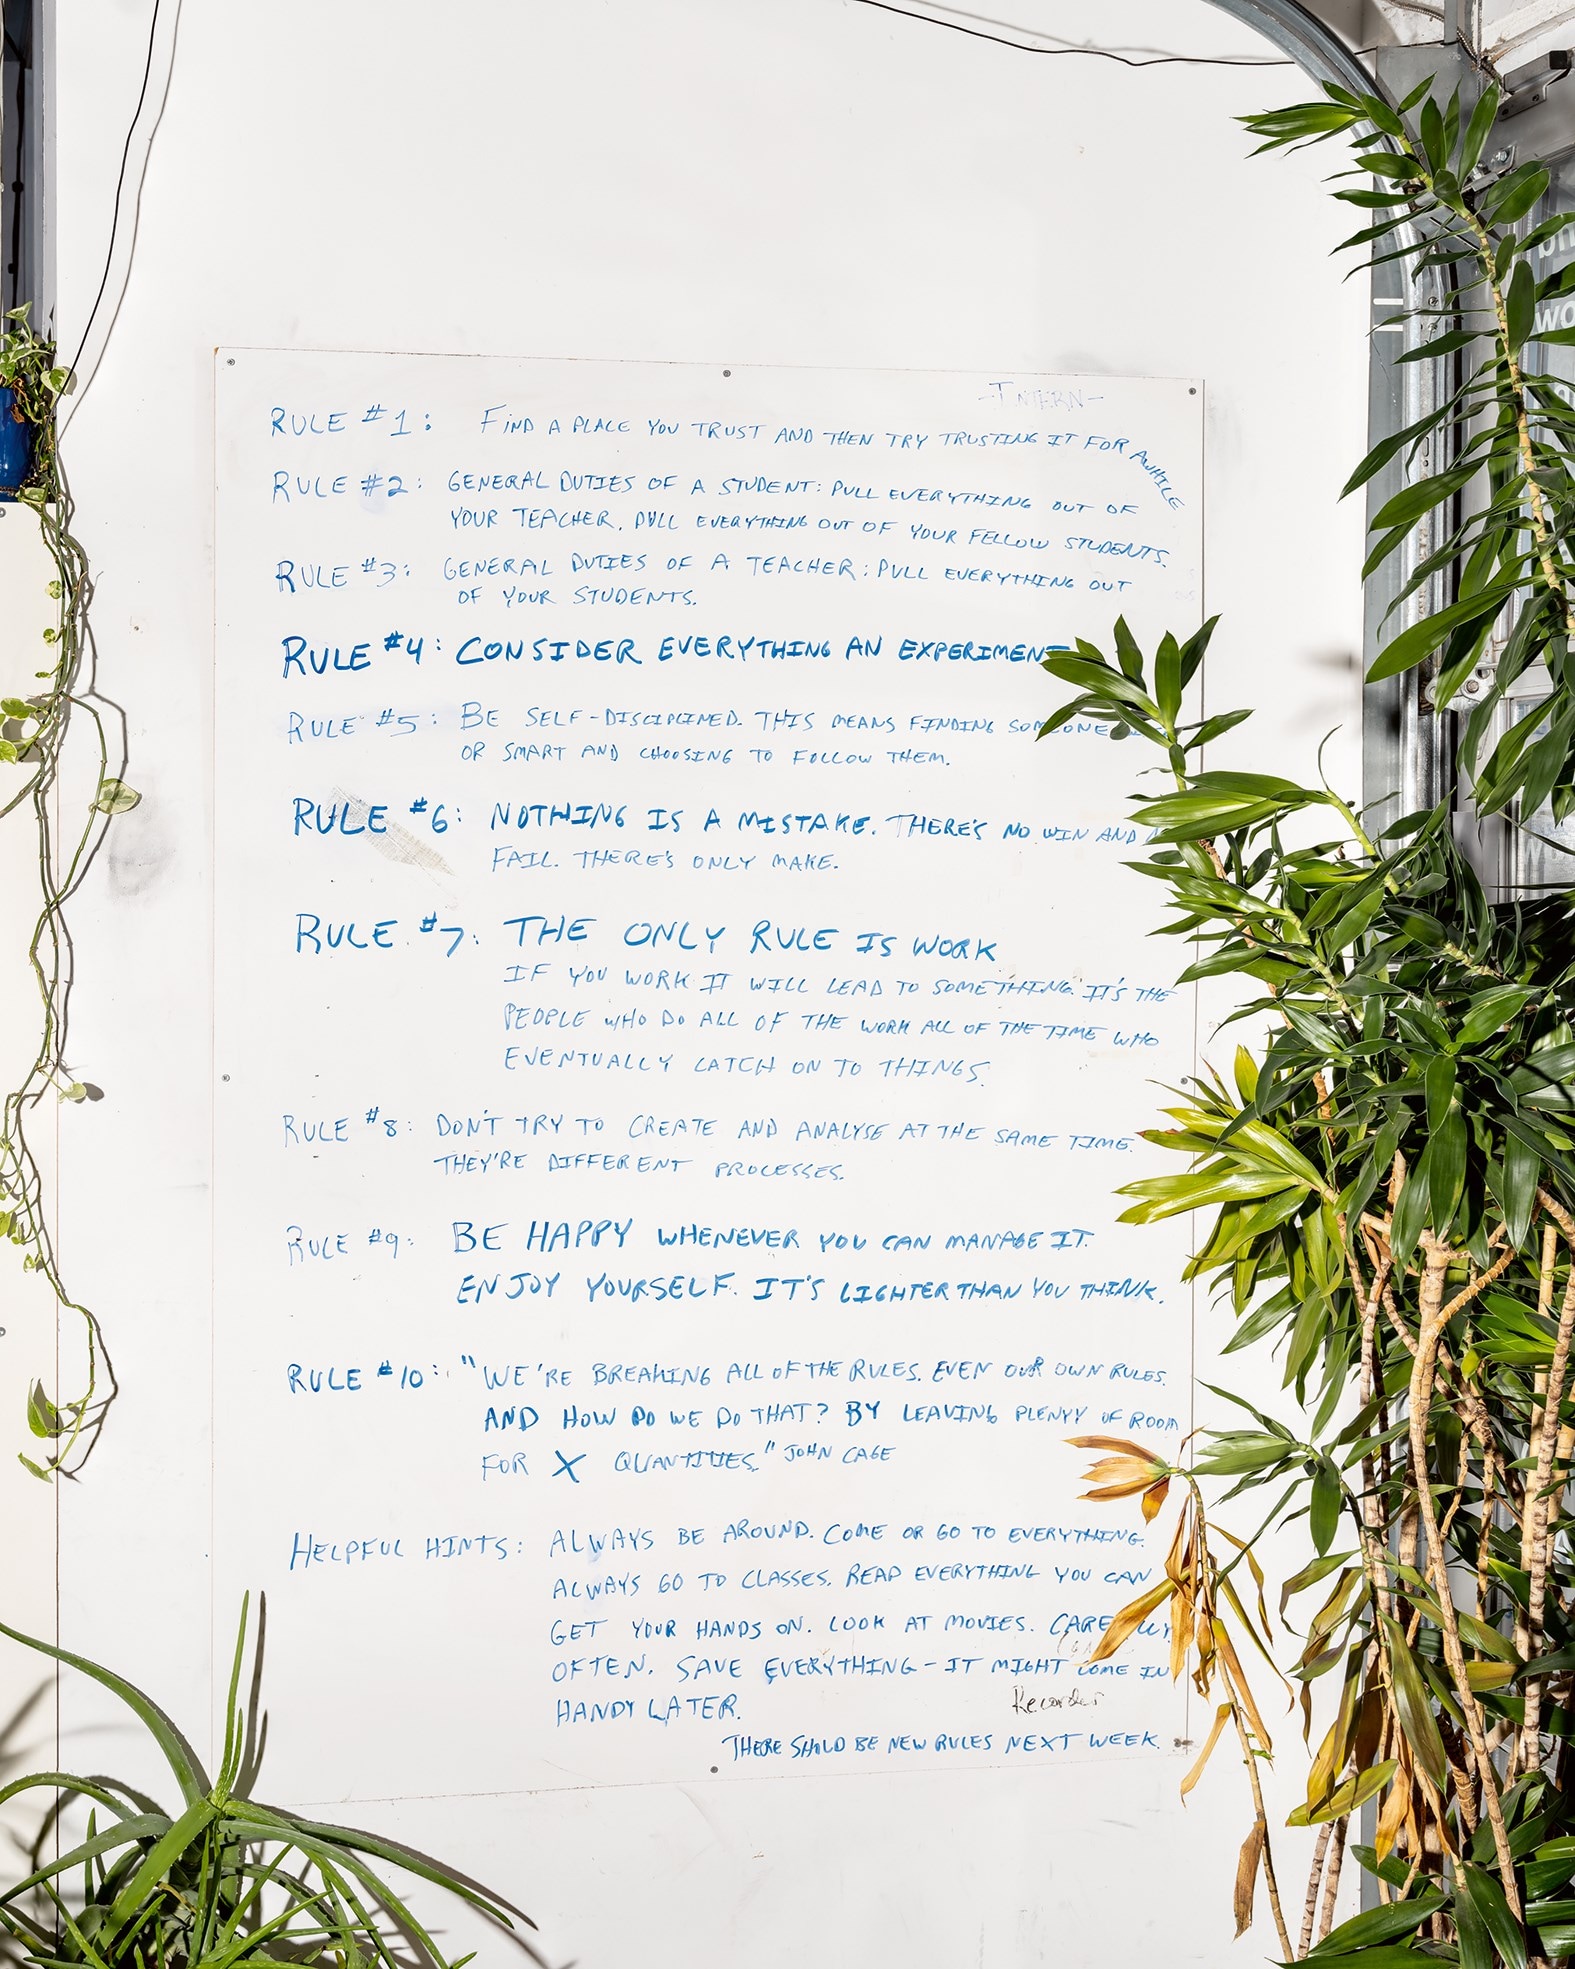 -INTERN-
RULE #1: FIND A PLACE YOU TRUST AND THEN TRY TRUSTING IT FOR AWHILE
RULE #2: GENERAL DUTIES OF A STUDENT: PULL EVERYTHING OUT OF
YOUR TEACHER. PULL EVERYTHING OUT OF YOUR FELLOW STUDENTS.
RULE #3: GENERAL DUTIES OF A TEACHER: PULL EVERYTHING OUT
OF YOUR STUDENTS.
RULE #4: CONSIDER EVERYTHING AN EXPERIMENT
RULE #5: BE SELF-DISCIPLINED. THIS MEANS FINDING SOMEONE
OR SMART AND CHOOSING TO FOLLOW THEM.
RULE #6: NOTHING IS A MISTAKE. THERE'S NO WIN AND
FAIL. THERE'S ONLY MAKE.
RULE #7: THE ONLY RULE IS WORK
IF YOU WORK IT WILL LEAD TO SOMETHING. IT'S THE
PEOPLE WHO DO ALL OF THE WORK ALL OF THE TIME WHO
EVENTUALLY CATCH ON TO THINGS.
RULE #8: DON'T TRY TO CREATE AND ANALYSE AT THE SAME TIME.
THEY'RE DIFFERENT PROCESSES.
RULE #9: BE HAPPY WHENEVER YOU CAN MANAGE IT.
ENJOY YOURSELF. IT'S LIGHTER THAN YOU THINK.
RULE #10: "WE'RE BREAKING ALL OF THE RULES. EVEN OUR OWN RULES.
AND HOW DO WE DO THAT? BY LEAVING PLENTY OF ROOM
FOR X QUANTITIES." JOHN CAGE
HELPFUL HINTS: ALWAYS BE AROUND. COME OR GO TO EVERYTHING.
ALWAYS GO TO CLASSES. READ EVERYTHING YOU CAN
GET YOUR HANDS ON. LOOK AT MOVIES. CAREFULLY.
OFTEN. SAVE EVERYTHING - IT MIGHT COME IN
HANDY LATER.
Recorder
THERE SHOLD BE NEW RULES NEXT WEEK.